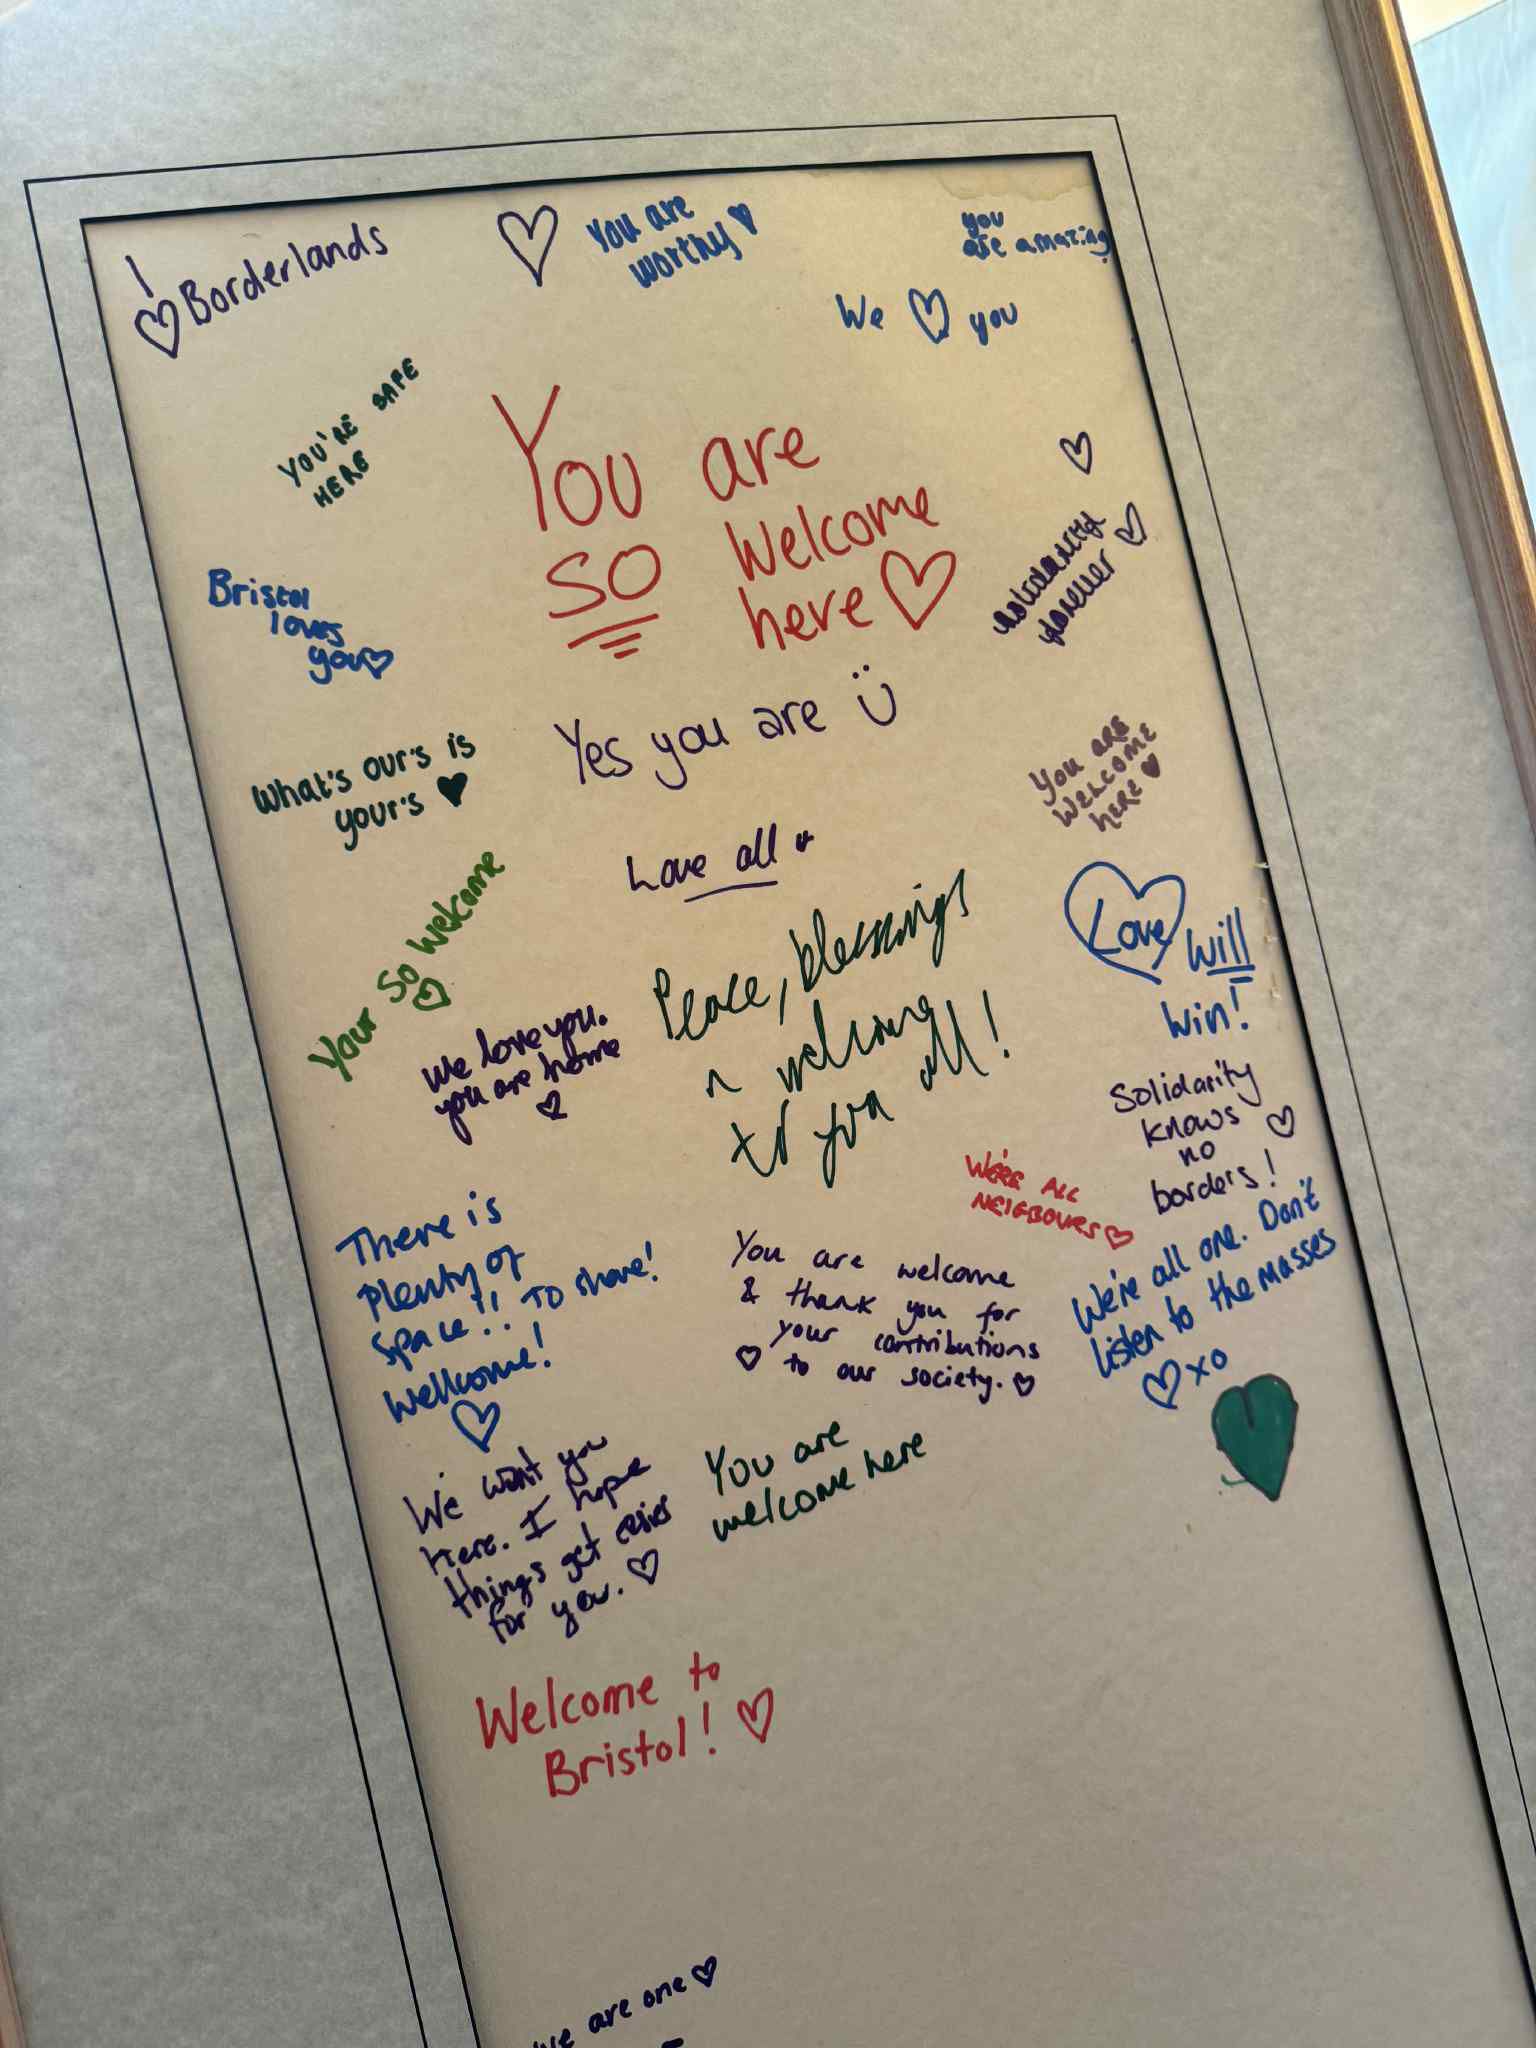 I
♡ Borderlands
You are
worthy ♥
you
are amazing
We ♡ you
YOU'RE SAFE
HERE
You are
SO welcome
here ♡
solidarity
forever ♡
Bristol
loves
you ♡
Yes you are Ü
What's our's is
your's ♥
YOU ARE
WELCOME
HERE ♥
Love all
Your So Welcome
♡
Love will
win!
Peace, blessings
n welcome
to you all!
We love you.
you are home
♡
Solidarity
knows
no ♡
borders!
WE'RE ALL
NEIGBOURS ♡
There is
Plenty of
Space!! To share!
Wellcome!
♡
You are welcome
& thank you for
your contributions
♡ to our society. ♡
We're all one. Don't
listen to the masses
♡ xo
We want you
Here. I hope
things get easier
for you. ♡
You are
welcome here
Welcome to
Bristol! ♡
are one ♡